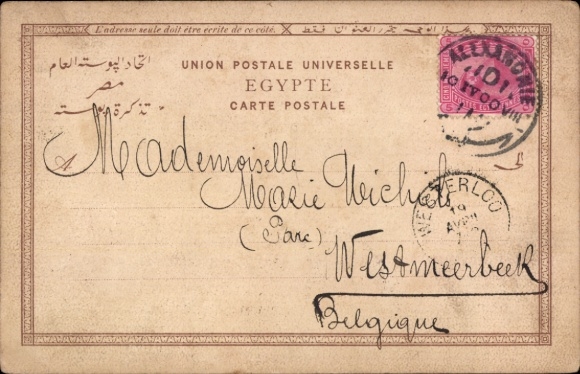 L'adresse seule doit être écrite de ce côté.
اتحاد البوسته العام
مصر
تذكرة بوسته
UNION POSTALE UNIVERSELLE
EGYPTE
CARTE POSTALE
ALEXANDRIE
10 IV 00
Mademoiselle
Marie
(Parc)
Westmeerbeek
Belgique
WESTERLOO
19
AVRIL